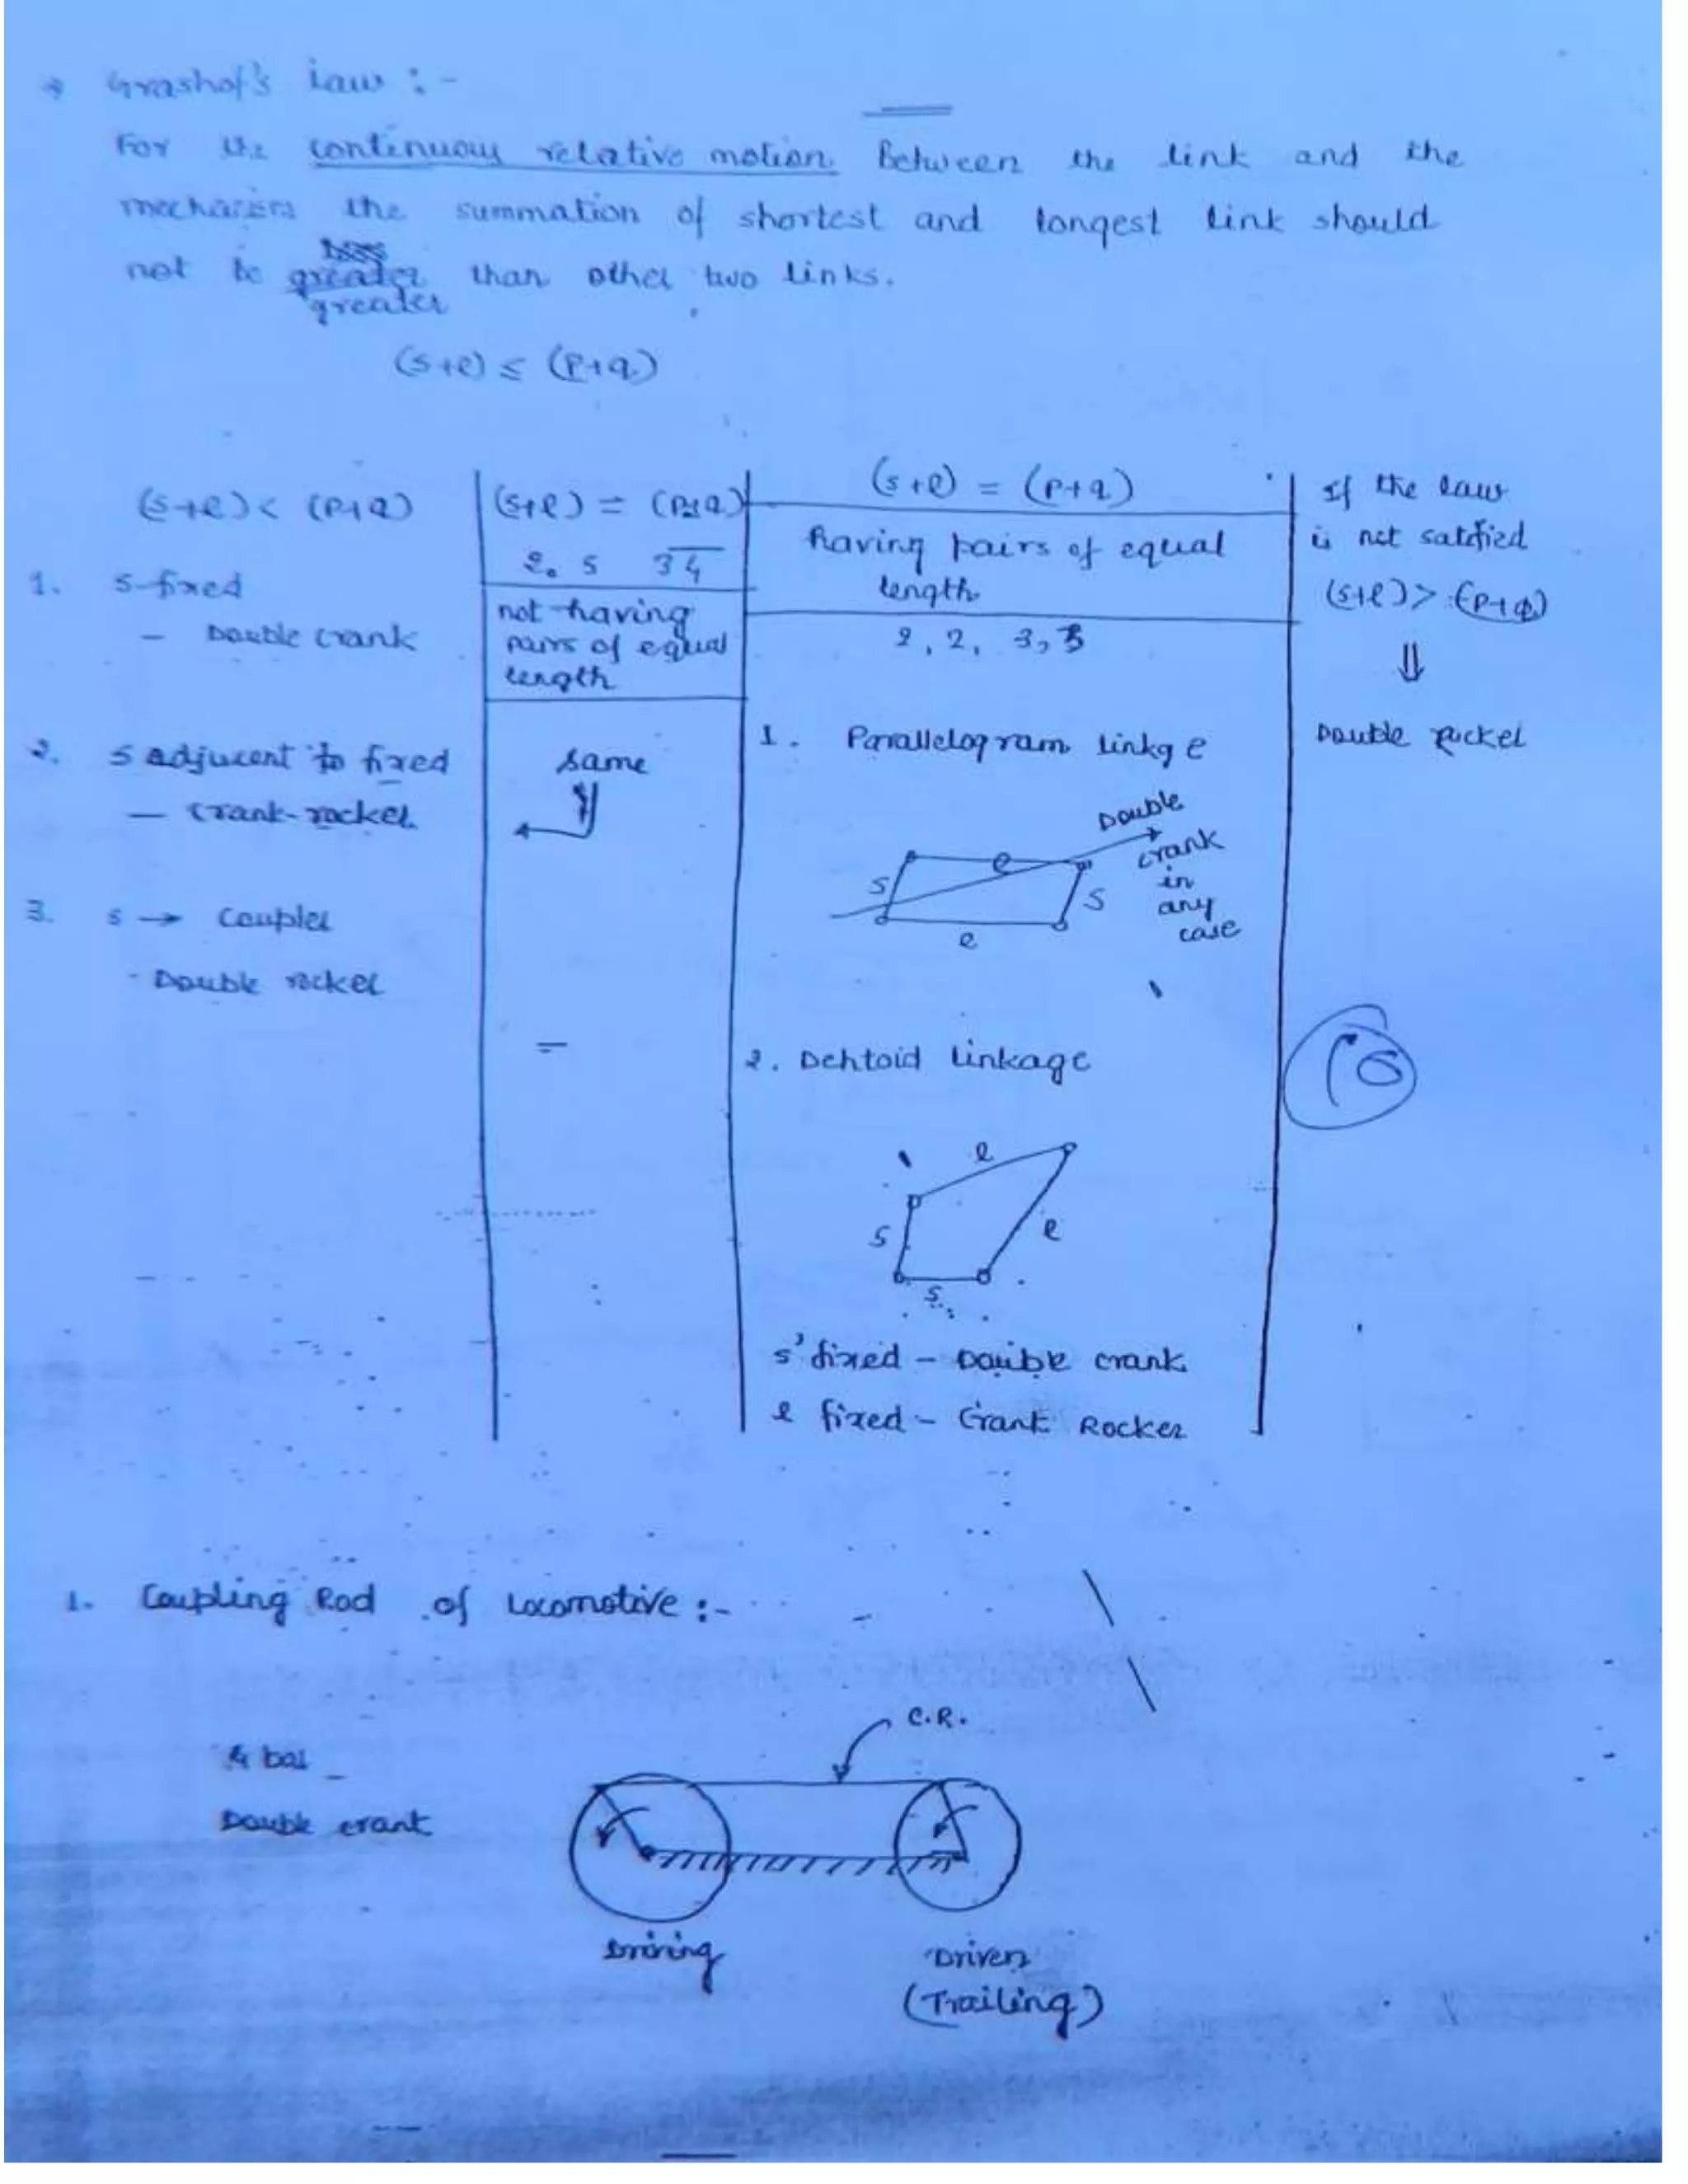 Grashof's Law :-
For the continuous relative motion Between the link and the
mechanism the summation of shortest and longest link should
not be greater than other two links.
greater
(s+l) ≤ (p+q)
(s+l) < (p+q)
1. s-fixed
- Double crank
2. s adjucent to fixed
- Crank-rocker
3. s → Coupler
- Double rocker
(s+l) = (p+q)
2. 5 34
not having
pairs of equal
length
same
(s+l) = (p+q)
having pairs of equal
length
2, 2, 3, 3
1. Parallelogram Linkge
s
l
s
l
Double
crank
in
any
case
2. Dehtoid linkage
l
l
s
s
s' fixed - Double crank
l fixed - Crank Rocker
If the law
is not satsfied
(s+l) > (p+q)
⇓
Double Rocker
1. Coupling Rod of Locomotive :-
4 bar
Double crank
C.R.
Driving
Driven
(Trailing)